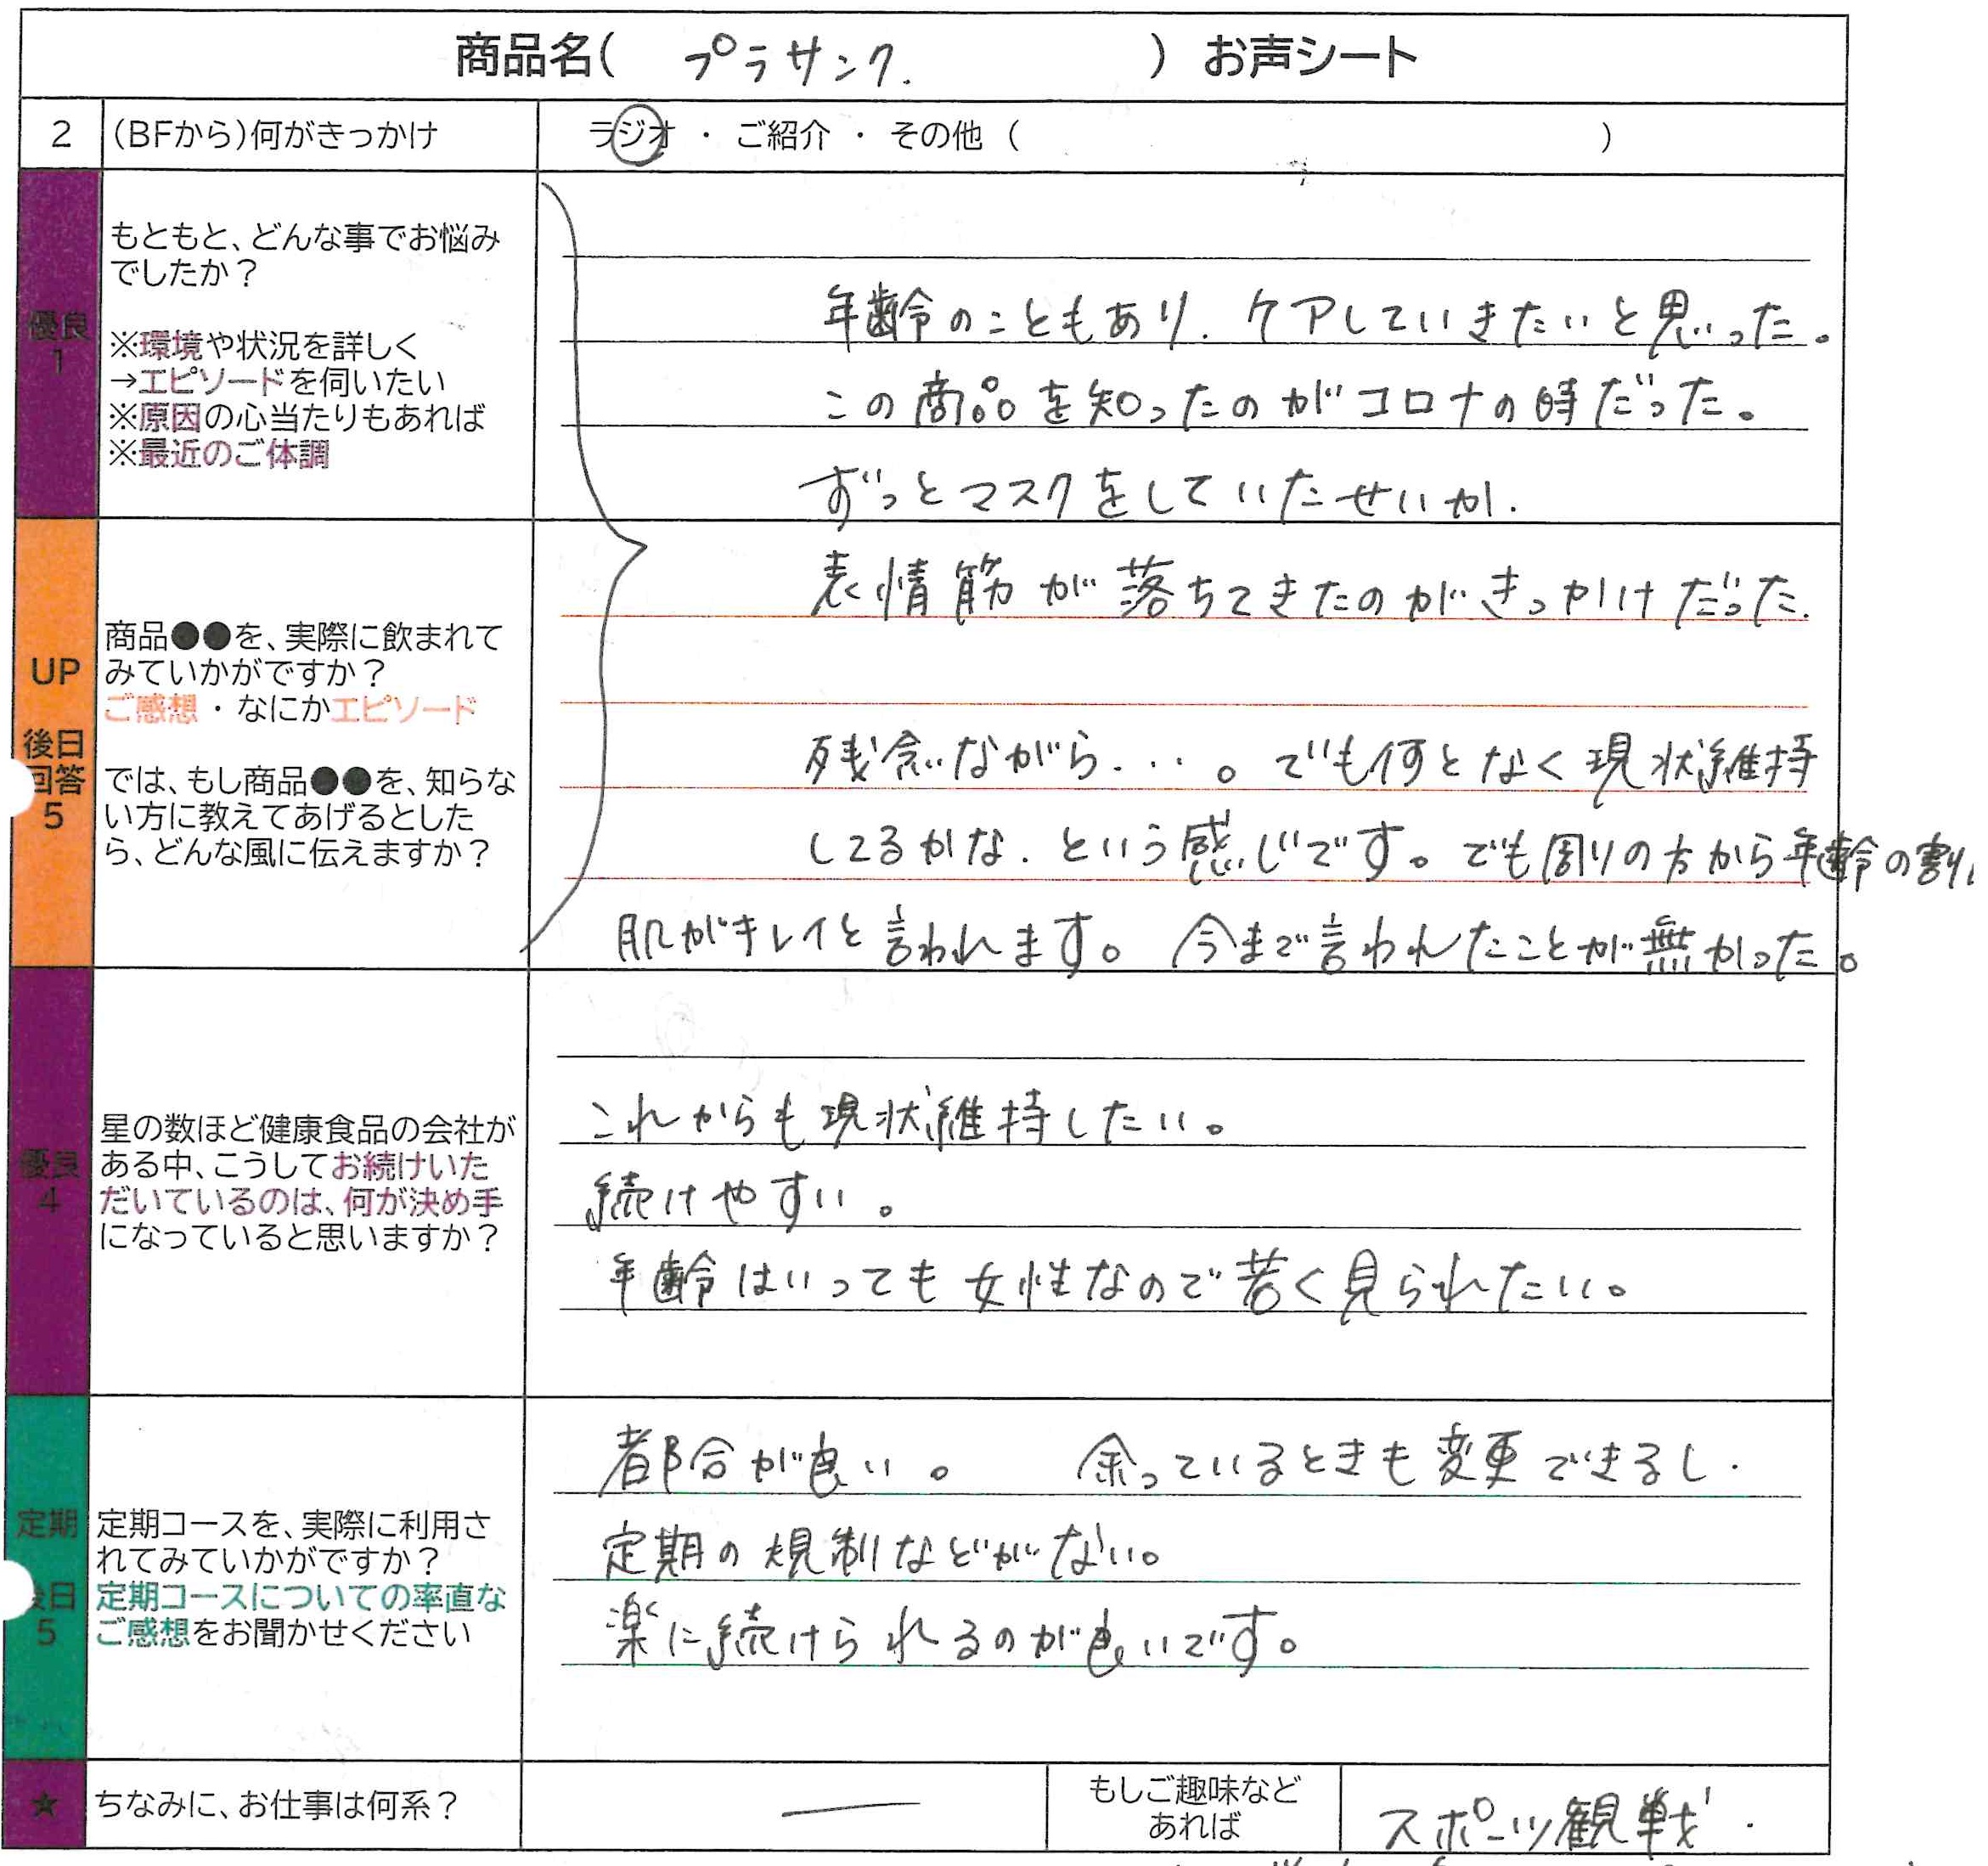 商品名( プラサンク. ) お声シート
2 (BFから)何がきっかけ ラジオ ・ ご紹介 ・ その他 ( )
優良
1
もともと、どんな事でお悩み
でしたか?
※環境や状況を詳しく
→エピソードを伺いたい
※原因の心当たりもあれば
※最近のご体調
年齢のこともあり. ケアしていきたいと思った。
この商品を知ったのがコロナの時だった。
ずっとマスクをしていたせいか.
表情筋が落ちてきたのがきっかけだった.
UP
後日
回答
5
商品●●を、実際に飲まれて
みていかがですか?
ご感想・なにかエピソード
では、もし商品●●を、知らな
い方に教えてあげるとした
ら、どんな風に伝えますか?
残念ながら...。でも何となく現状維持
してるかな. という感じです。でも周りの方から年齢の割に
肌がキレイと言われます。 今まで言われたことが無かった。
優良
4
星の数ほど健康食品の会社が
ある中、こうしてお続けいた
だいているのは、何が決め手
になっていると思いますか?
これからも現状維持したい。
続けやすい。
年齢はいっても女性なので若く見られたい。
定期
後日
5
定期コースを、実際に利用さ
れてみていかがですか?
定期コースについての率直な
ご感想をお聞かせください
都合が良い。 余っているときも変更できるし.
定期の規制などがない。
楽に続けられるのが良いです。
★ ちなみに、お仕事は何系? ―
もしご趣味など
あれば
スポーツ観戦.